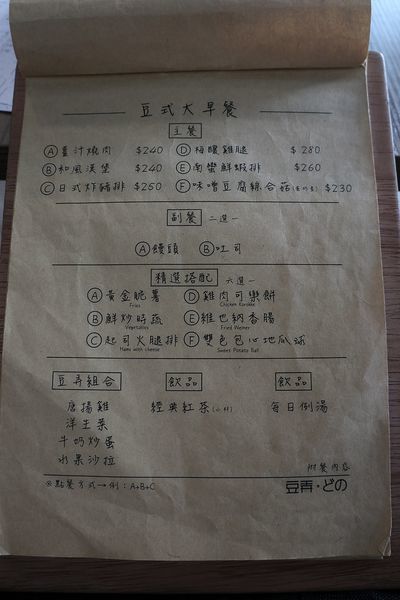 豆式大早餐
主餐
Ⓐ薑汁燒肉 $240 Ⓓ梅釀雞腿 $280
Ⓑ和風漢堡 $240 Ⓔ南蠻鮮蝦排 $260
Ⓒ日式炸豬排 $260 Ⓕ味噌豆腐綜合菇 $230
副餐 二選一
Ⓐ饅頭 Ⓑ吐司
精選搭配 六選一
Ⓐ黃金脆薯 Ⓓ雞肉可樂餅
Fries Chicken Korokke
Ⓑ鮮炒時蔬 Ⓔ維也納香腸
Vegetables Fried Weiner
Ⓒ起司火腿排 Ⓕ雙色包心地瓜球
Hams with cheese Sweet Potato Ball
豆弄組合 飲品 飲品
唐揚雞 經典紅茶 每日例湯
洋生菜
牛奶炒蛋
水果沙拉
附餐內容
※點餐方式→例：A+B+C 豆弄·どの